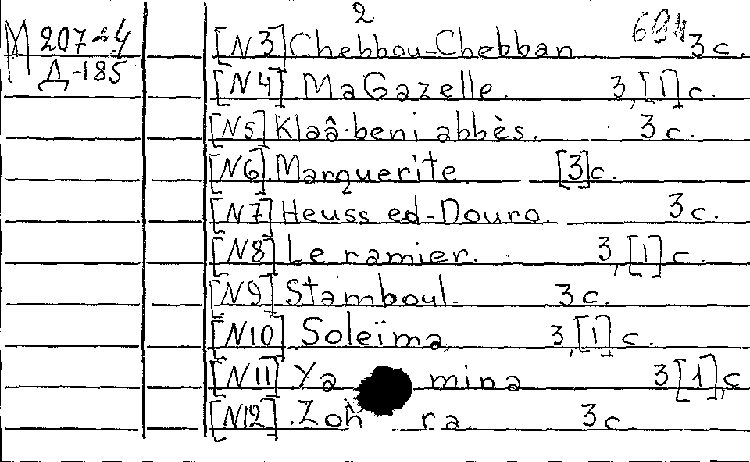 2
М 207-24
Д-185
[N3] Chebbou-Chebban 3 c.
[N4] Ma Gazelle. 3, [1] c.
[N5] Klaâ-beni abbès. 3 c.
[N6] Marguerite [3] c.
[N7] Heuss ed-Douro. 3 c.
[N8] Le ramier. 3, [1] c.
[N9] Stamboul. 3 c.
[N10] Soleïma 3, [1] c.
[N11] Ya mina 3 [1], c
[N12]. Zoh ra 3 c.